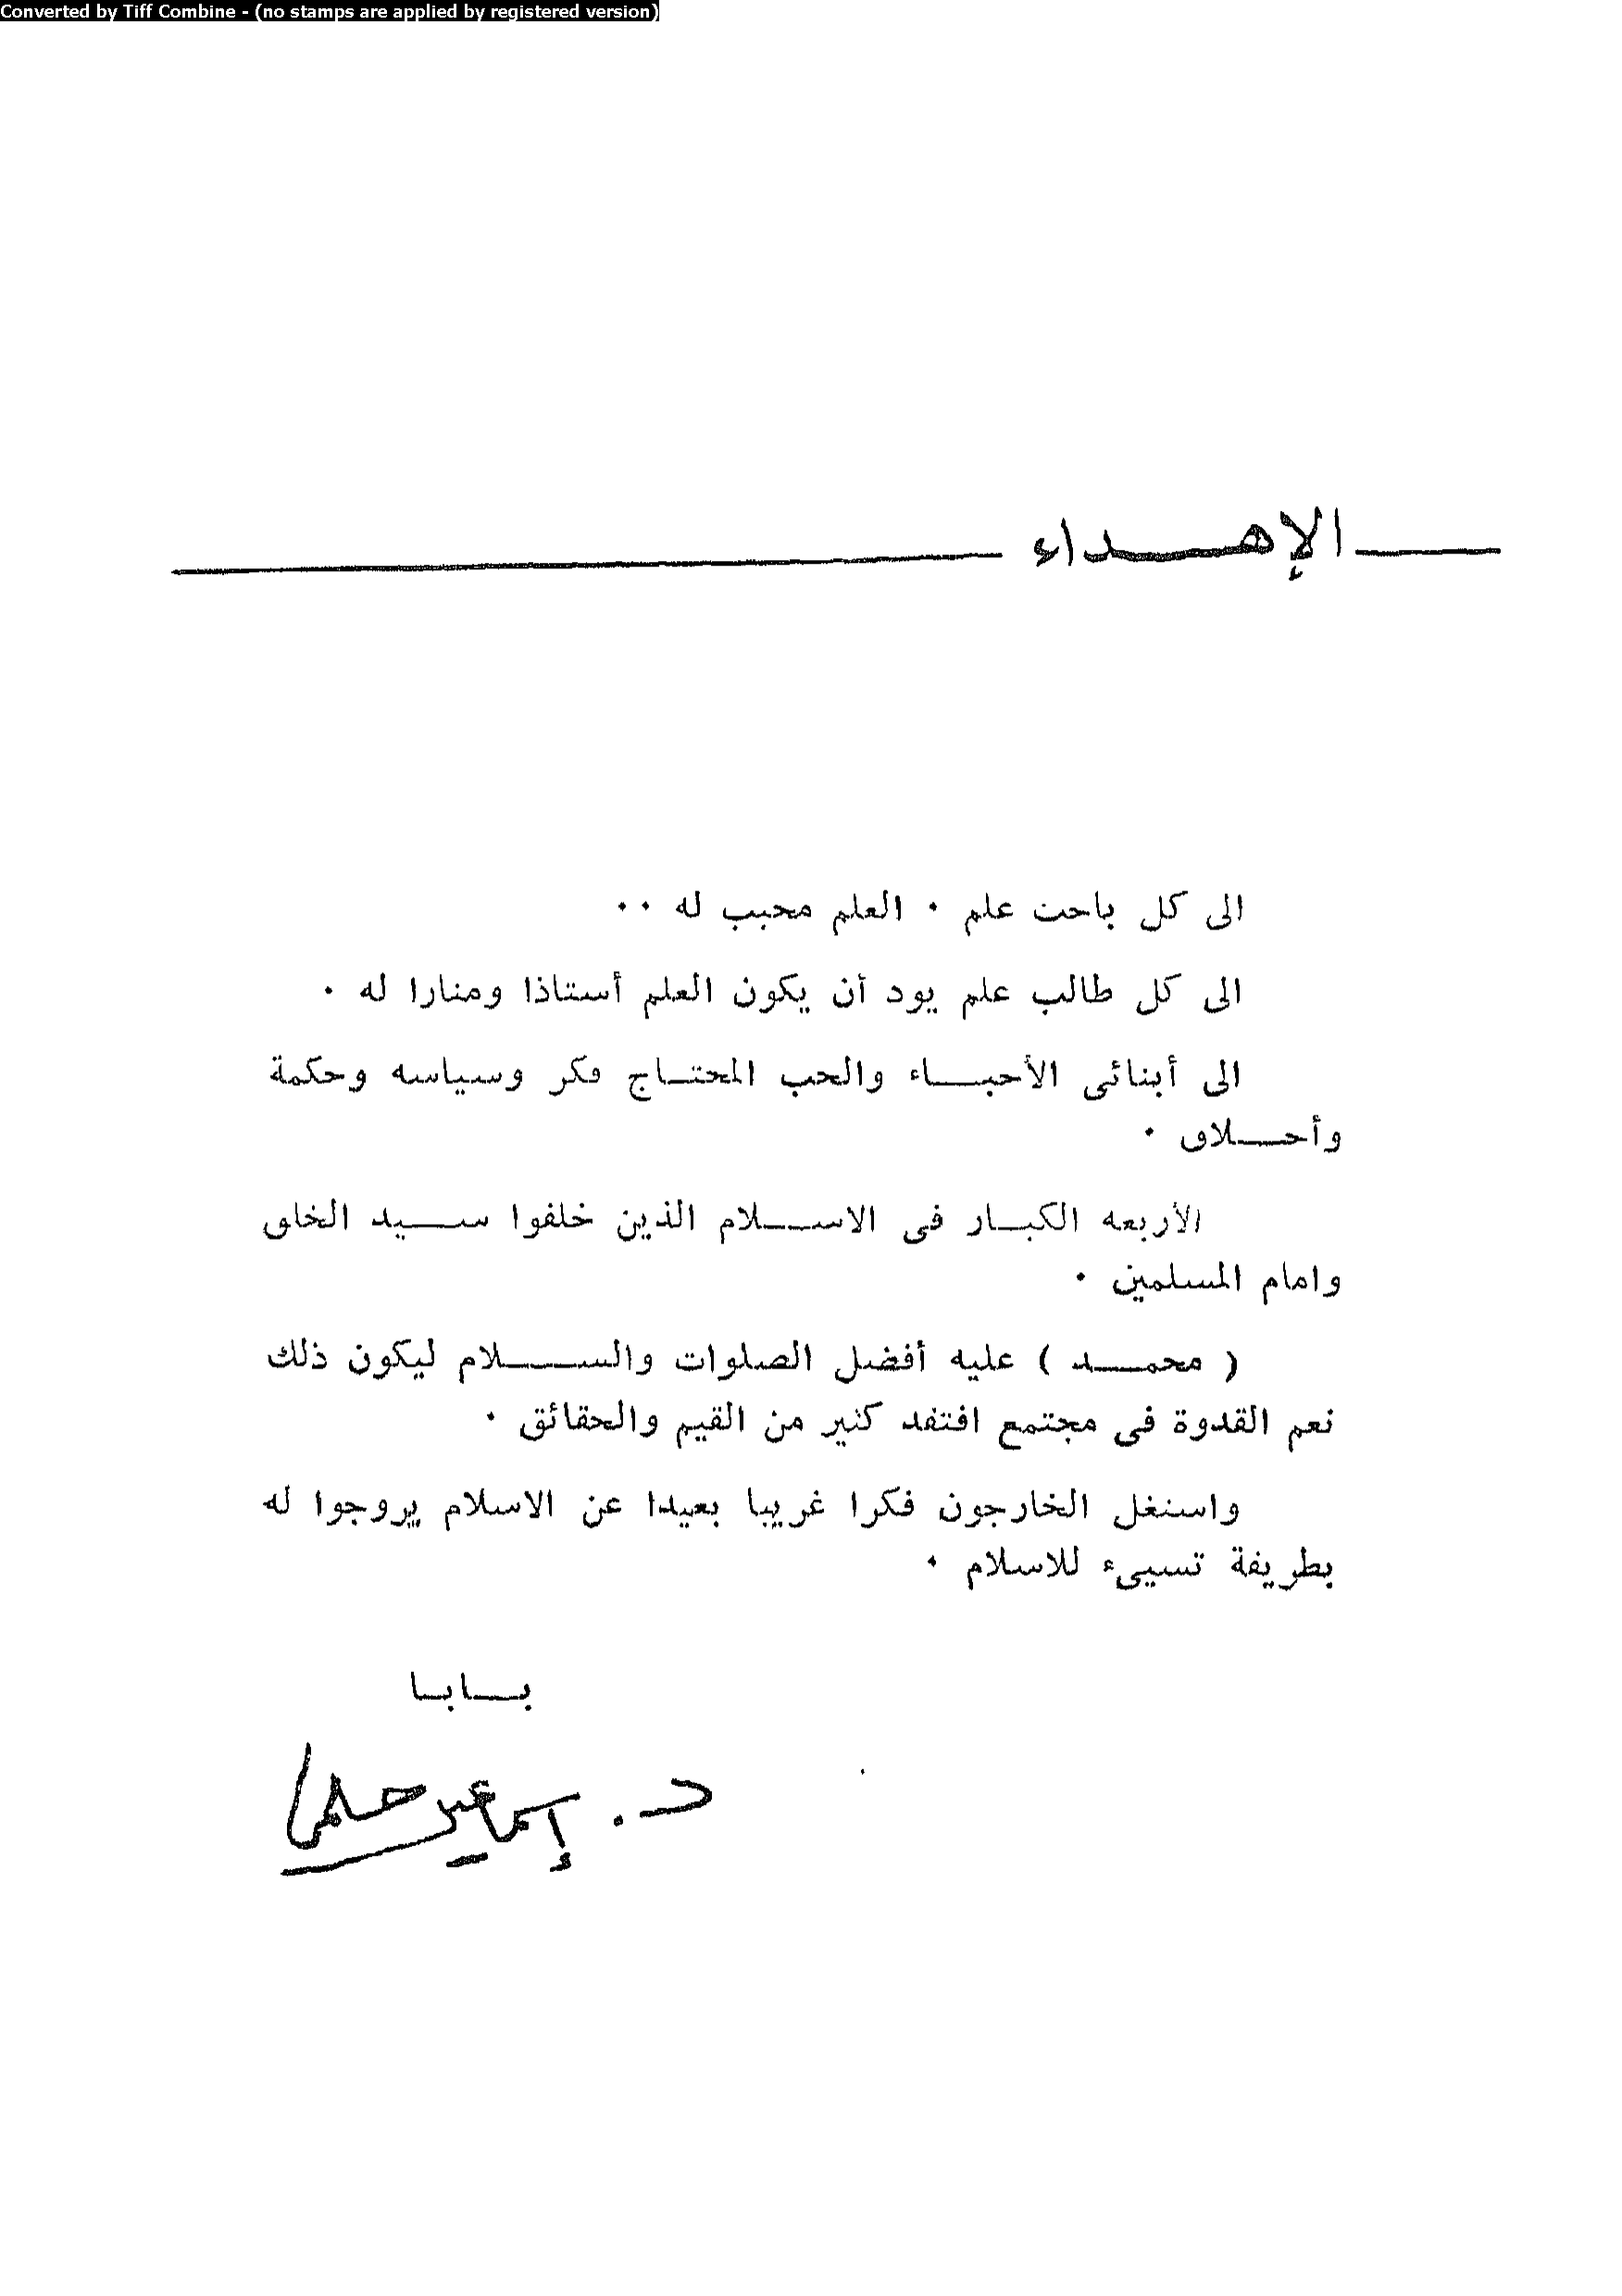 Converted by Tiff Combine - (no stamps are applied by registered version)
الإهداء
الى كل باحث علم ٠ العلم محبب له ٠٠
الى كل طالب علم يود أن يكون العلم أستاذا ومنارا له ٠
الى أبنائى الأحباء والحب المحتاج فكر وسياسه وحكمة
وأخلاق ٠
الأربعه الكبار فى الاسلام الذين خلفوا سيد الخلق
وامام المسلمين ٠
( محمد ) عليه أفضل الصلوات والسلام ليكون ذلك
نعم القدوة فى مجتمع افتقد كثير من القيم والحقائق ٠
واستغل الخارجون فكرا غريبا بعيدا عن الاسلام يروجوا له
بطريقة تسيىء للاسلام ٠
بابا
د. إسماعيل حلمى